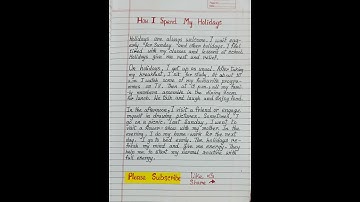 How I Spend My Holidays
Holidays are always welcome. I wait eag-
erly for Sunday and other holidays. I feel
tired with my classes and lessons at school.
Holidays give me rest and relief.
On holidays, I get up as usual. After taking
my breakfast, I sit for study. At about 10
a.m. I watch some of my favourite program-
mes on TV. Then at 12 p.m. all my fami-
ly members assemble in the dining room
for lunch. We talk and laugh and enjoy food.
In the afternoon, I visit a friend or engage
myself in drawing pictures. Sometimes, I
go on a picnic. Last Sunday, I went to
visit a flower-show with my mother. In the
evening, I do my home-work for the next
day. I go to bed early. The holidays re-
fresh my mind and give me energy. They
help me to start my normal routine with
full energy.
Please Subscribe
Like
Share